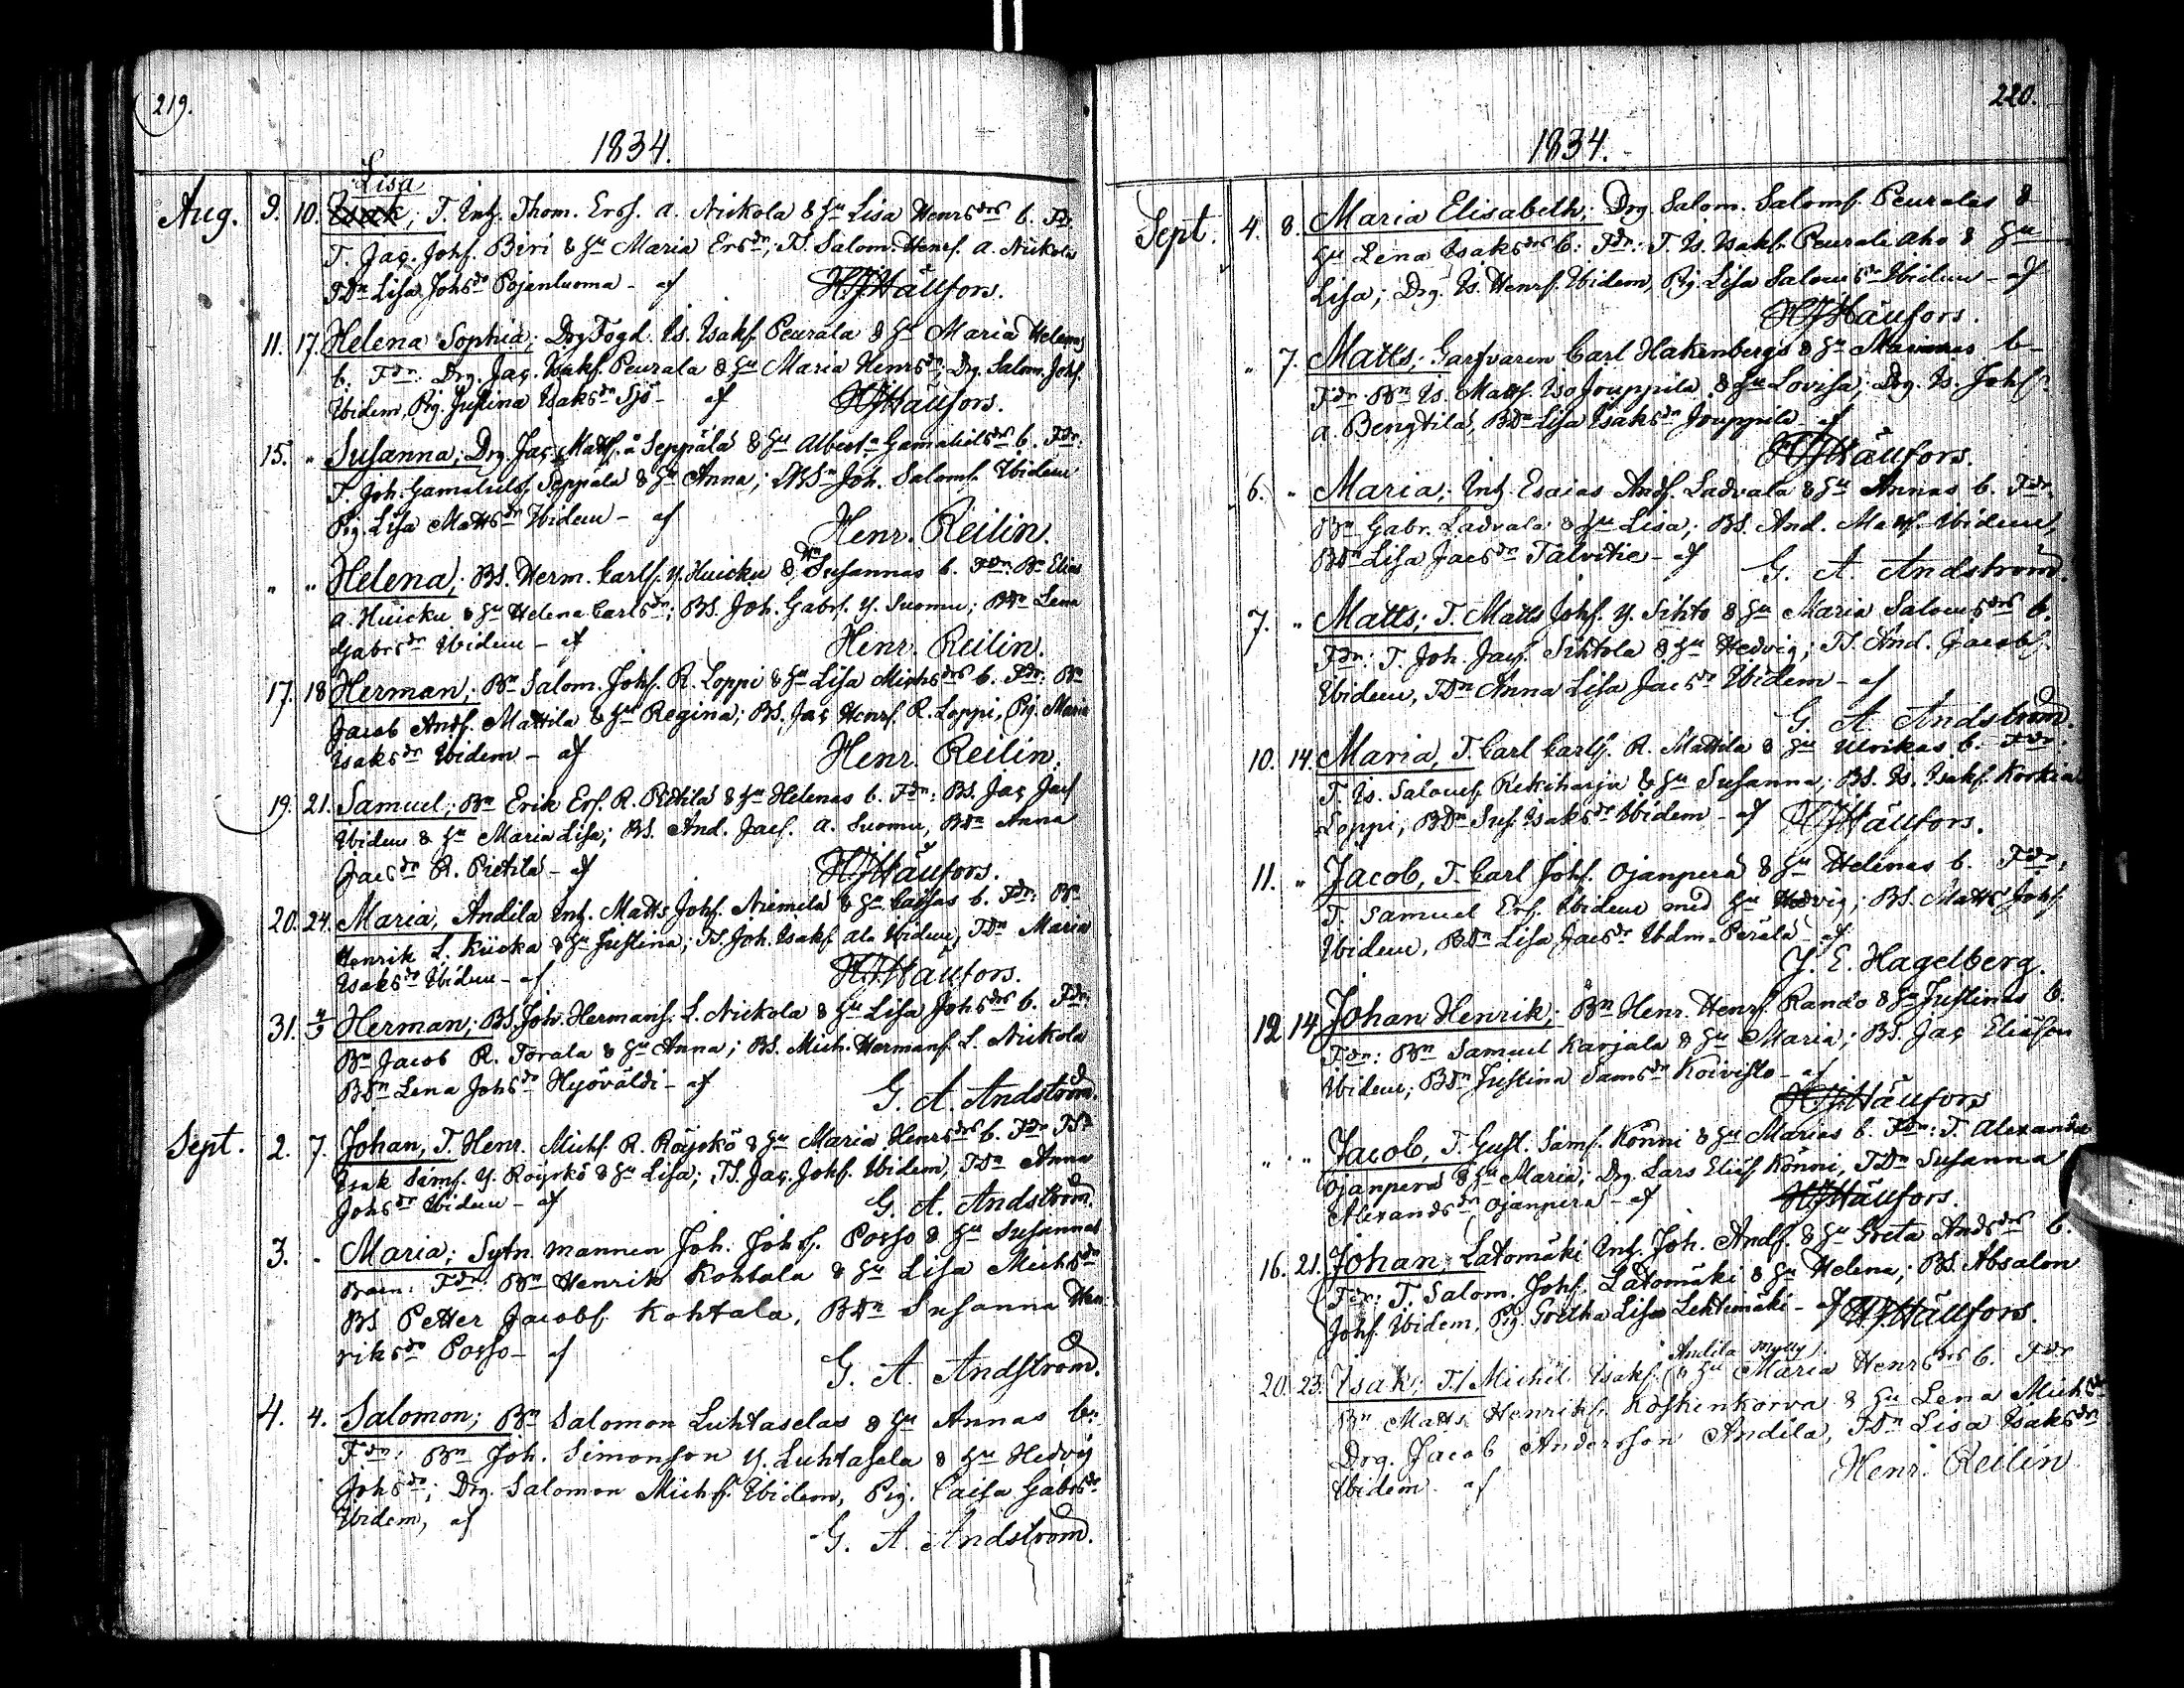 219.
1834.
Lisa
Aug. 9. 10. Isak; T. Inh. Thom. Ersf. a. Nickola & Hu Lisa Henrsdrs b. Fdr.
T. Jac. Johs. Biri & Hu Maria Ersdr; TS. Salom. Henrs. a. Nickola
TDr Lisa Johsdr Pojanluoma - af H. J. Häufors.
11. 17. Helena Sophia; Drg Fogd. Is. Isaks. Peurala & Hu Maria Helenas
b. Fdr: Drg. Jac. Isaks. Peurala & Hu Maria Henrsdr; Drg. Salom. Johs.
Ibidem, Pig. Justina Isaksdr Sjö - af H. J. Häufors.
15. " Susanna; Drg. Jac. Matts. a Seppälä & Hu Albert Gamalielsdrs b. Fdr:
T. Joh. Gamaliels. Seppälä & Hu Anna; Joh. Saloms. Ibidem
Pig. Lisa Mattsdr Ibidem - af Henr. Reilin.
" " Helena; BS. Herm. Carls. y. Huicku & Hu Susannas b. Fdr: Bn Elias
a. Huicku & Hu Helena Carlsdr; BS. Joh. Gabrs. y. Suomu; BDr Lena
Gabrsdr Ibidem - af Henr. Reilin.
17. 18 Herman; Bn Salom. Johs. R. Loppi & Hu Lisa Michsdrs b. Fdr: Bn
Jacob Ands. Mattila & Hu Regina; BS. Jac. Henrs. R. Loppi, Pig. Maria
Isaksdr Ibidem - af Henr. Reilin.
19. 21. Samuel; Bn Erik Ers. R. Pietilä & Hu Helenas b. Fdr: BS. Jac. Jacs
Ibidem & Hu Maria Lisa; BS. And. Jacs. a. Suomu, BDr Anna
Jacsdr R. Pietilä - af H. J. Häufors.
20. 24. Maria, Andila Inh. Matts Johs. Niemelä & Hu Caisas b. Fdr: Bn
Henrik L. Kiicka & Hu Justina; TS. Joh. Isaks. ala Ibidem, TDr Maria
Isaksdr Ibidem - af H. J. Häufors.
31. 4/9 Herman; BS. Joh. Hermans. L. Nickola & Hu Lisa Johsdrs b. Fdr:
Bn Jacob R. Torala & Hu Anna; BS. Mich. Hermans. L. Nickola
BDr Lena Johsdr Hyöväldi - af G. A. Andström.
Sept. 2. 7. Johan, T. Henr. Michs. R. Röyskö & Hu Maria Henrsdrs b. Fdr
Isak Sims. y. Röyskö & Hu Lisa; TS. Jac. Johs. Ibidem, TDr Anna
Johsdr Ibidem - af G. A. Andström.
3. " Maria; Sytn. mannen Joh. Johs. Posso & Hu Susannas
Barn: Fdr: Bn Henrik Kohtala & Hu Lisa Michsdr
BS Petter Jacobs. Kohtala, BDr Susanna Hen
riksdr Posso - af
G. A. Andström.
4. 4. Salomon; Bn Salomon Luhtaselas & Hu Annas b:
Fdr: Bn Joh. Simonson y. Luhtasela & Hu Hedvig
Johsdr; Drg. Salomon Michs. Ibidem, Pig. Caisa Gabrsdr
Ibidem, af
G. A. Andström.
220.
1834.
Sept. 4. 8. Maria Elisabeth; Drg. Salom. Saloms. Peuralas &
Hu Lena Isaksdrs b: Fdr: T. Is. Isaks. Peurala aho & Hu
Lisa; Drg. Is. Henrs. Ibidem, Pig. Lisa Salomsdr Ibidem - af
H. J. Häufors.
" 7. Matts; Garfvaren Carl Hakenbergs & Hu Marias b-
Fdr Bn Is. Matts. Iso Jouppila & Hu Lovisa; Drg. Is. Johs.
a. Bengtilä, BDr Lisa Isaksdr Jouppila - af
H. J. Häufors.
6. " Maria; Inh. Esaias Ands. Ladvala & Hu Annas b. Fdr.
Bn Gabr. Ladvala & Hu Lisa; BS. And. Matts. Ibidem,
BDr Lisa Jacsdr Talvitie - af G. A. Andström.
7. " Matts; T. Matts Johs. y. Sihto & Hu Maria Salomsdrs b.
Fdr: T. Joh. Jacs. Sihtola & Hu Hedvig; TS. And. Jacobs.
Ibidem, TDr Anna Lisa Jacsdr Ibidem - af
G. A. Andström.
10. 14. Maria, T. Carl Carls. R. Mattila & Hu Ulrikas b. Fdr:
T. Is. Saloms. Rekiharju & Hu Susanna; BS. Is. Isaks. Korkia
Loppi, BDr Sus. Isaksdr Ibidem - af H. J. Häufors.
11. " Jacob, T. Carl Johs. Ojanperä & Hu Helenas b. Fdr:
T. Samuel Ers. Ibidem med Hu Hedvig; BS. Matts Johs.
Ibidem, BDr Lisa Jacsdr Ibdm Perälä af
J. E. Hagelberg.
12 14 Johan Henrik; Bn Henr. Henrs. Rando & Hu Justinas b.
Fdr: Bn Samuel Karjala & Hu Maria; BS. Jac. Eliäson
Ibidem; BDr Justina Samsdr Koivisto - af
H. J. Häufors
" " Jacob, T. Gust. Sims. Könni & Hu Marias b. Fdr: T. Alexander
Ojanperä & Hu Maria; Drg. Lars Eliäs. Könni, TDr Susanna
Alexandsdr Ojanperä - af H. J. Häufors.
16. 21. Johan; Latomäki Inh. Joh. Ands. & Hu Greta Andsdrs b.
Fdr: T. Salom. Johs. Latomäki & Hu Helena; BS. Absalon
Johs. Ibidem, Pig. Gretha Lisa Lehtimäki - af H. J. Häufors.
Andila Mylly
20. 23. Isak; T. Michel Isaks. & Hu Maria Henrsdrs b. Fdr
Bn Matts Henriks. Koskenkorva & Hu Lena Michsdr
Drg. Jacob Andersson Andila, TDr Lisa Isaksdr
Ibidem af Henr. Reilin